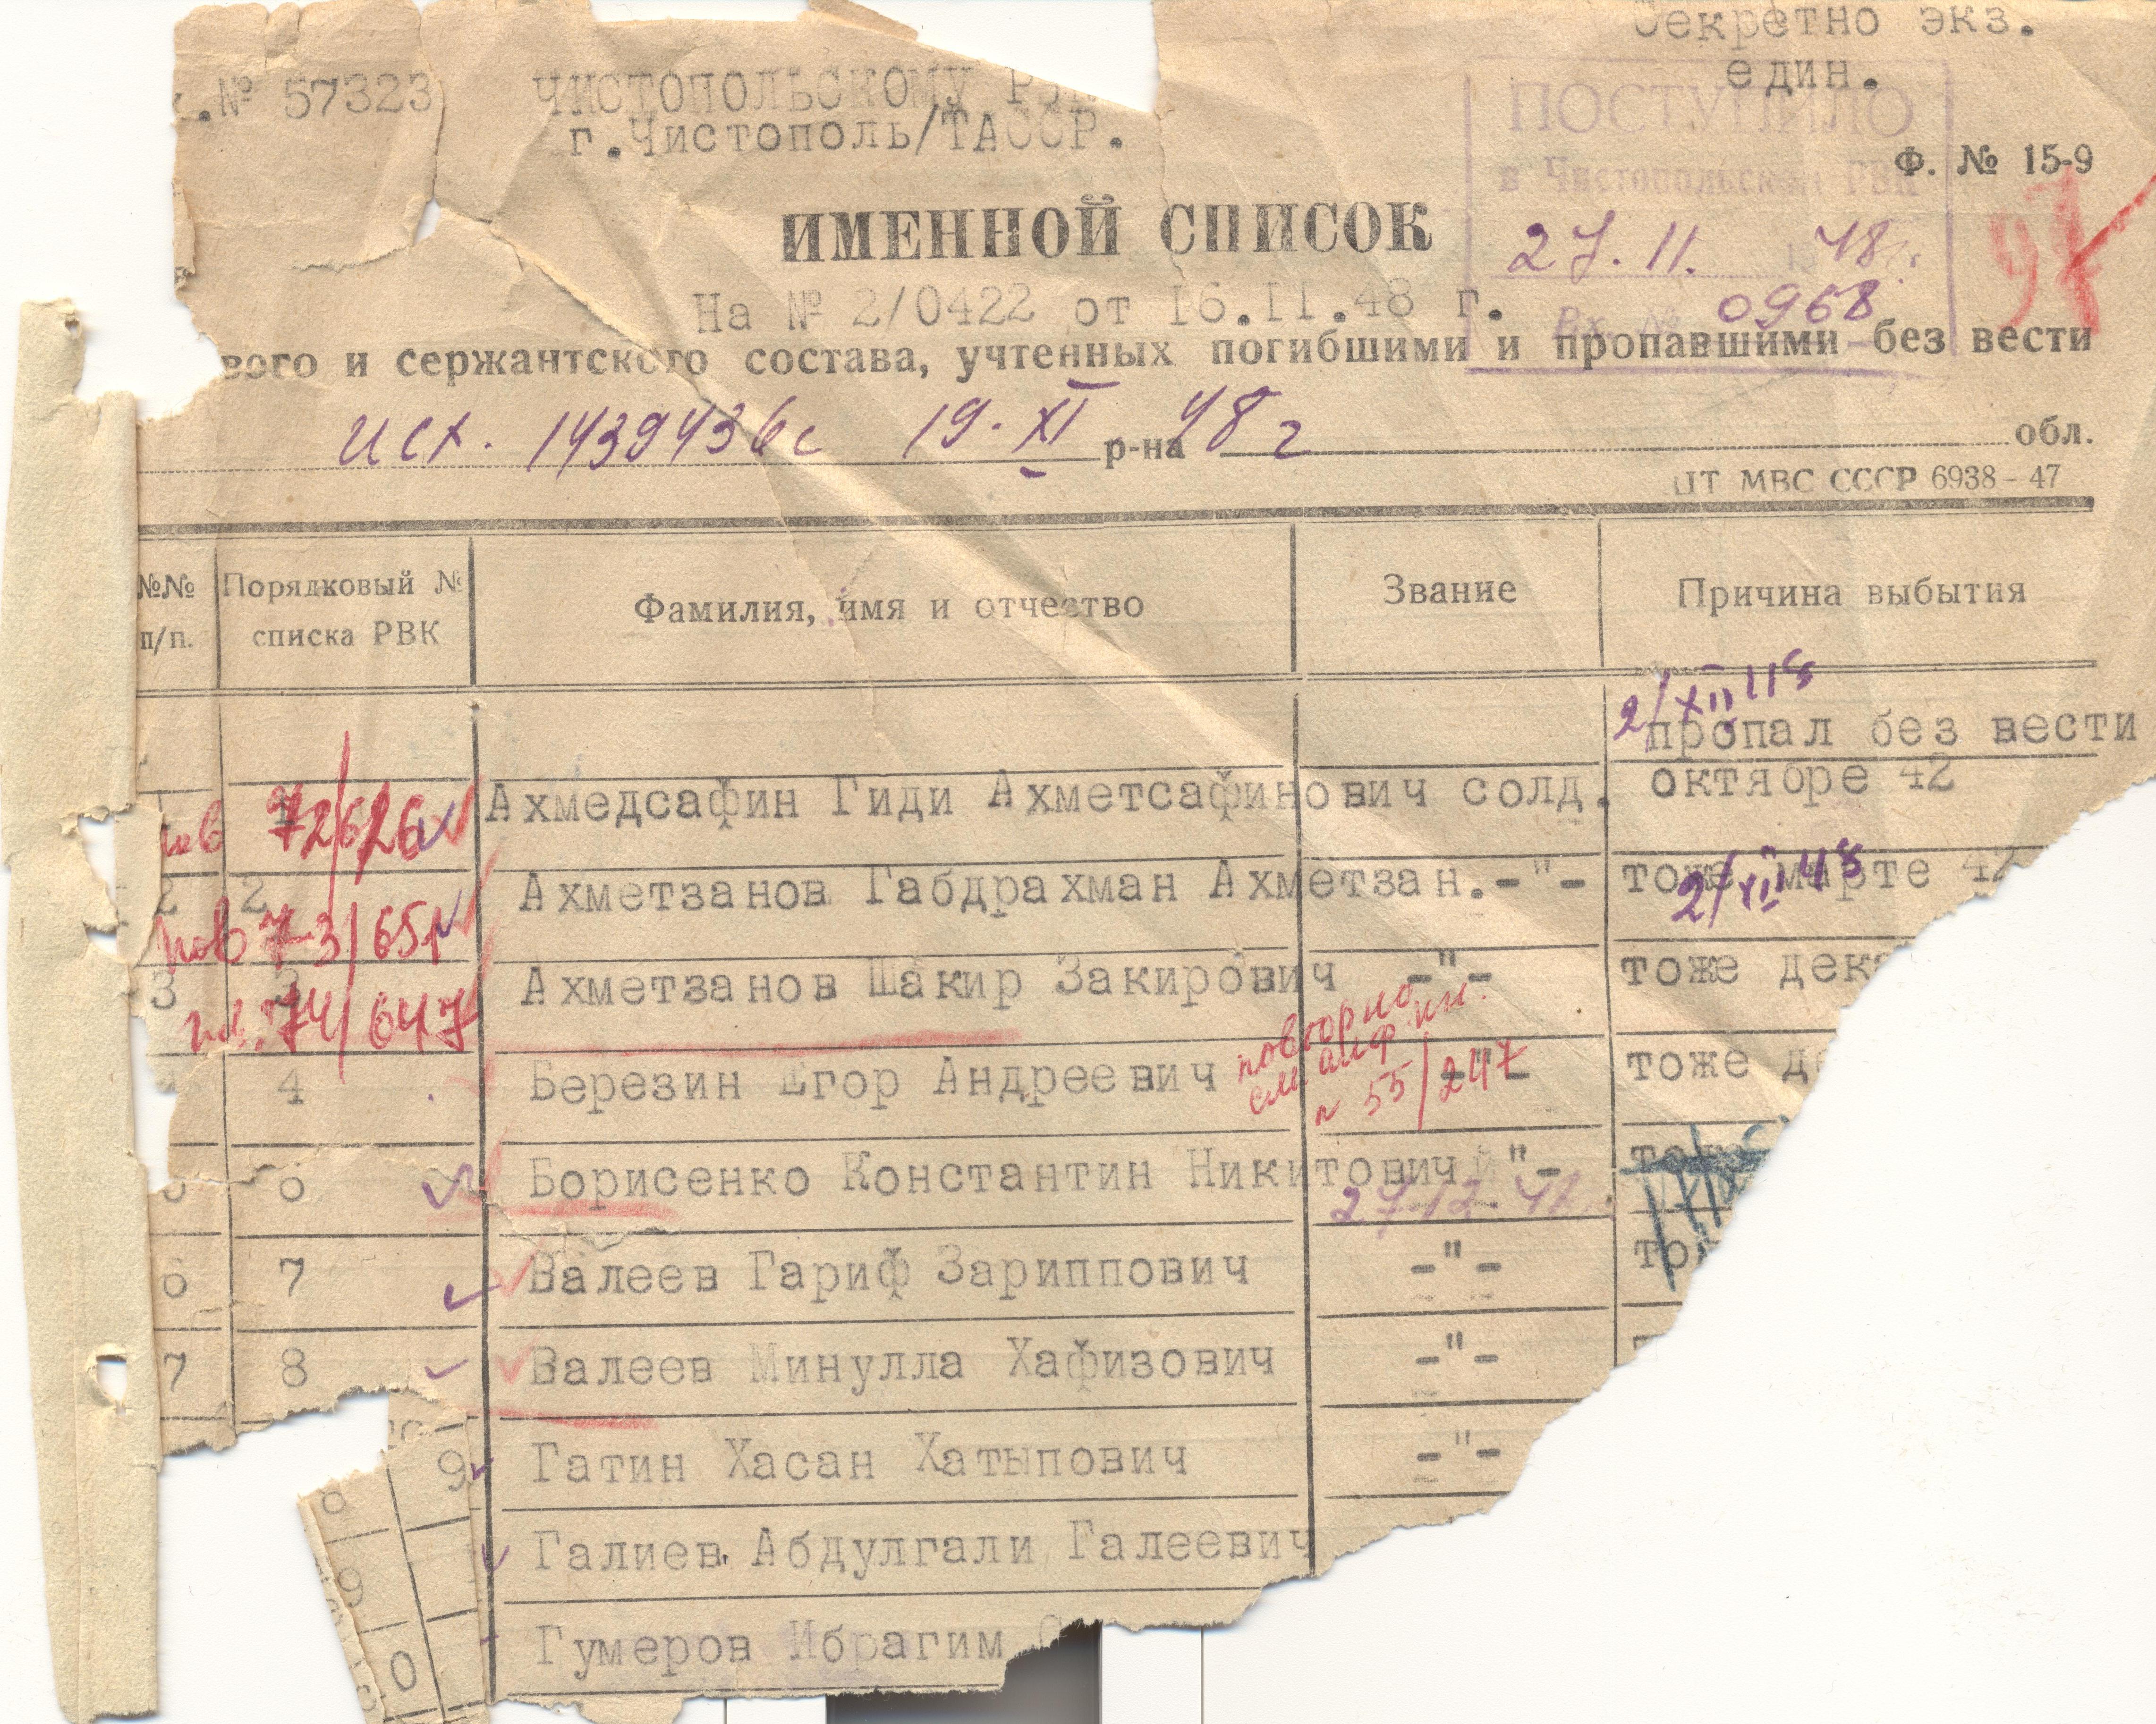 Секретно экз.
един.
.№ 57323 ЧИСТОПОЛЬСКОМУ
г.Чистополь/ТАССР.
ПОСТУПИЛО
в Чистопольский РВК
Ф. № 15-9
27.11. 48г.
ИМЕННОЙ СПИСОК
На № 2/0422 от 16.11.48 г.
Вх. № 0968
вого и сержантского состава, учтенных погибшими и пропавшими без вести
исх. 1439436с 19. XI 48 г
р-на обл.
МВС СССР 6938-47
№№ п/п. Порядковый № списка РВК Фамилия, имя и отчество Звание Причина выбытия
2/XII 48
пропал без вести
72/626 Ахмедсафин Гиди Ахметсафинович солд. октябре 42
2 2 Ахметзанов Габдрахман Ахметзан.-"- тоже марте 42
пов 73/651 2/XII 48
3 3 Ахметзанов Шакир Закирович -"- тоже дека
74/647 повторно
см
4 Березин Егор Андреевич -"- тоже де
55/247
6 Борисенко Константин Никитович -"- тоже
27.12.
6 7 Валеев Гариф Зариппович -"- то
7 8 Валеев Минулла Хафизович -"-
8 9 Гатин Хасан Хатыпович -"-
9 Галиев Абдулгали Галеевич
0 Гумеров Ибрагим